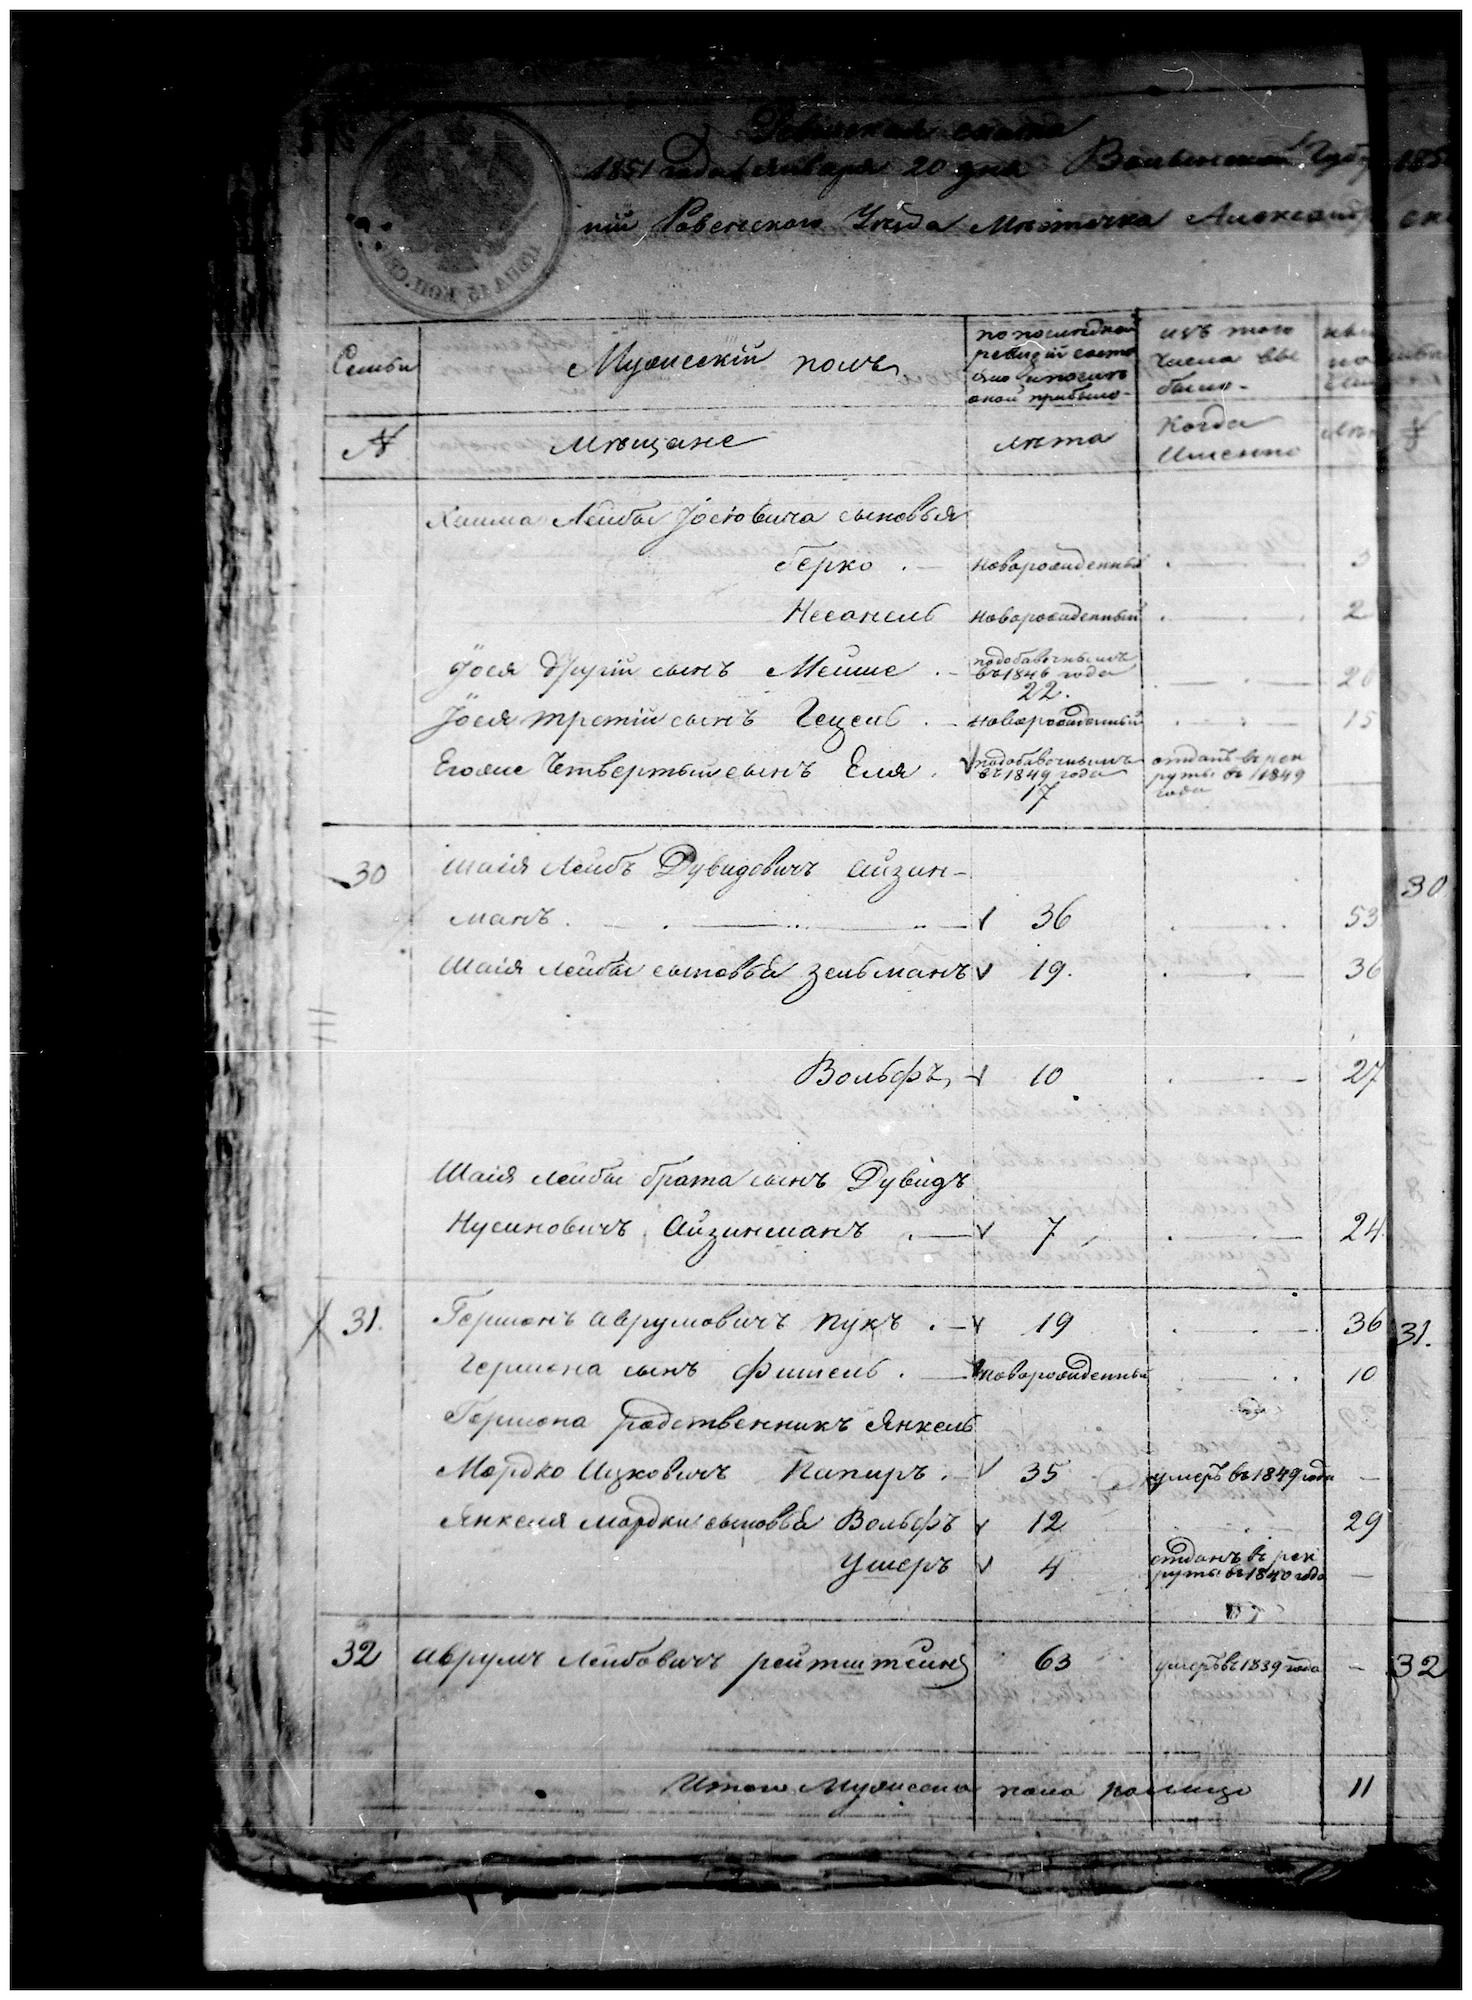 Ревизская сказка
1851 года Января 20 дня Волынской Губер
нии Ровенского Уѣзда Мѣстечка Александр
ЦѢНА 15 КОП. СЕР
Семьи
Мужескій полъ
по послѣдней
ревизіи состо
яло и послѣ
оной прибыло
изъ того
числа вы
было
№
Мѣщане
лѣта
Когда
Именно
Хаима Лейбы Іосіовича сыновья
Герко новорожденный 3
Несанель новорожденный 2
Іося другій сынъ Мейше подобавочнымъ
въ 1846 года
22. 26
Іося третій сынъ Гецель новорожденный 15
Егоже Четвертый сынъ Еля подобавочнымъ
въ 1849 года
17
отданъ в рек
руты въ 1849
года
30 Шаія Лейбъ Дувидовичъ Айзин-
манъ 36 53
30
Шаія Лейбы сыновья Зельманъ 19. 36
Вольфъ, 10 27
Шаія Лейбы брата сынъ Дувидъ
Нусиновичъ Айзинманъ 7 24
31. Гершонъ Аврумовичъ Пукъ 19 36 31.
Гершона сынъ Фишель новорожденный 10
Гершона родственникъ Янкель
Мордко Ицковичъ Папиръ 35 умеръ въ 1849 года
Янкеля Мордки сыновья Вольфъ 12 29
Ушеръ 4 отданъ в рек
руты въ 1840 года
32 Аврумъ Лейбовичъ Рейтштейнъ 63 умеръ въ 1839 года 32
Итого Мужеска пола налицо 11